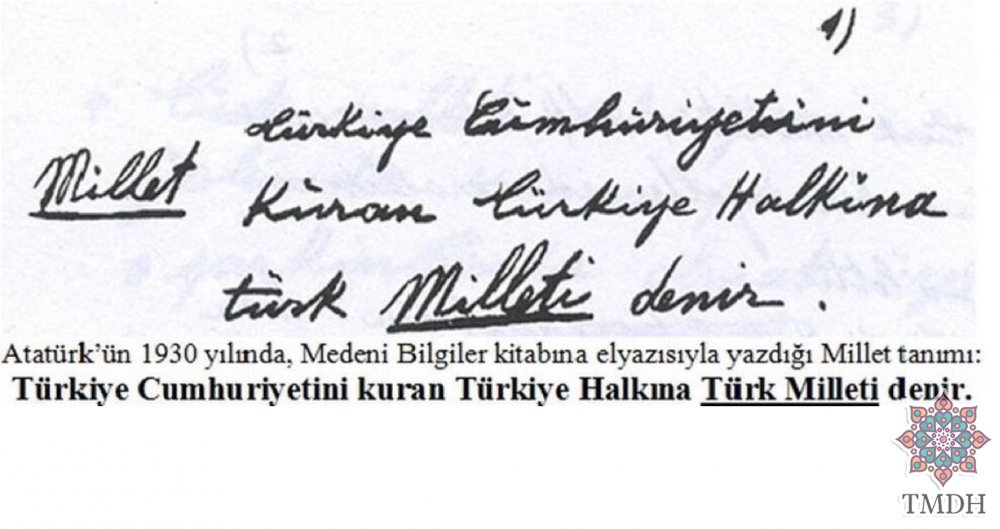 1)
Türkiye Cümhüriyetini
Millet Küran Türkiye Halkına
türk Milleti denir.
Atatürk'ün 1930 yılında, Medeni Bilgiler kitabına elyazısıyla yazdığı Millet tanımı:
Türkiye Cumhuriyetini kuran Türkiye Halkına Türk Milleti denir.
TMDH